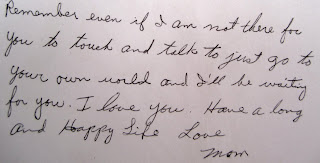 Remember even if I am not there for
you to touch and talk to just go to
your own world and I'll be waiting
for you. I love you. Have a long
and Hoappy Life Love
Mom